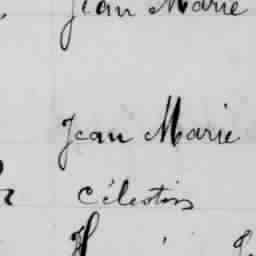 Jean Marie
Jean Marie
Célestin